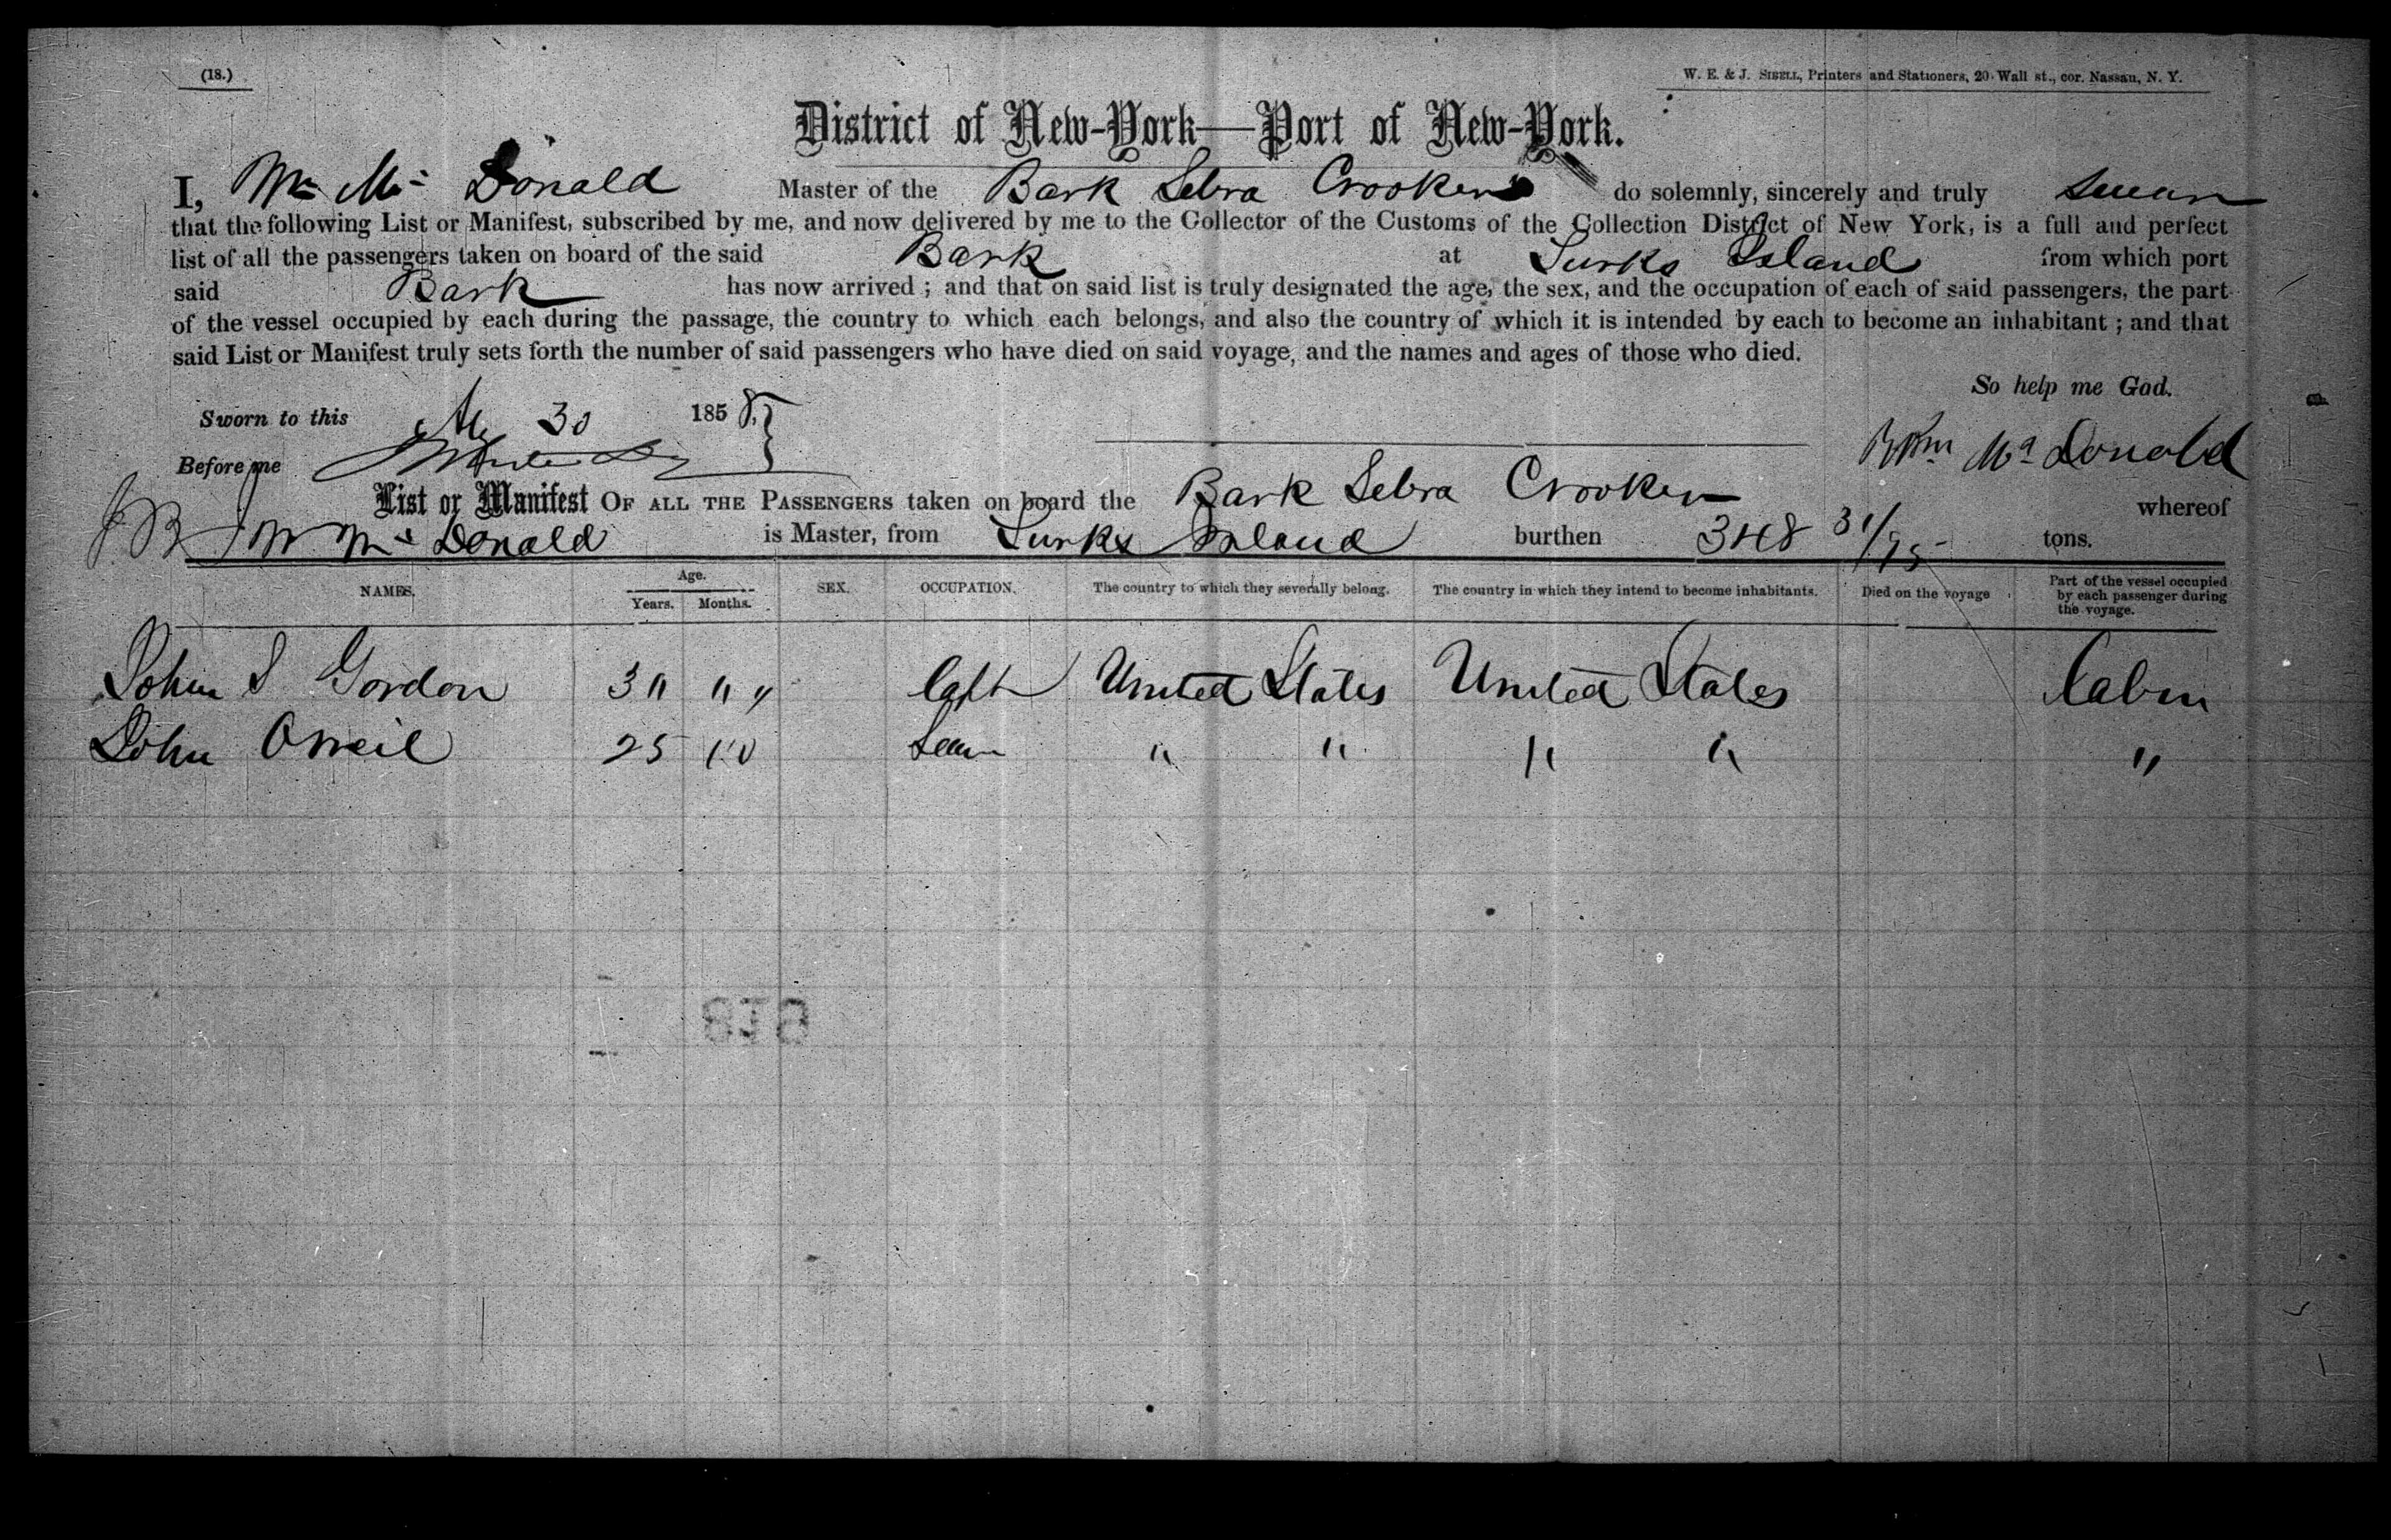 (18.)
W. E. & J. SIBELL, Printers and Stationers, 20 Wall st., cor. Nassau, N. Y.
District of New-York—Port of New-York.
I, Wm Mc Donald Master of the Bark Sebra Crooker do solemnly, sincerely and truly swear
that the following List or Manifest, subscribed by me, and now delivered by me to the Collector of the Customs of the Collection District of New York, is a full and perfect
list of all the passengers taken on board of the said Bark at Turks Island from which port
said Bark has now arrived ; and that on said list is truly designated the age, the sex, and the occupation of each of said passengers, the part
of the vessel occupied by each during the passage, the country to which each belongs, and also the country of which it is intended by each to become an inhabitant ; and that
said List or Manifest truly sets forth the number of said passengers who have died on said voyage, and the names and ages of those who died.
So help me God.
Sworn to this 30 1858
Before me
Wm Mc Donald
List or Manifest OF ALL THE PASSENGERS taken on board the Bark Sebra Crooker whereof
Wm Mc Donald is Master, from Turks Island burthen 348 31/95 tons.
NAMES. Age. Years. Months. SEX. OCCUPATION. The country to which they severally belong. The country in which they intend to become inhabitants. Died on the voyage Part of the vessel occupied by each passenger during the voyage.
John S Gordon 30 " " Capt United States United States Cabin
John Oneil 25 10 Seam " " " " "